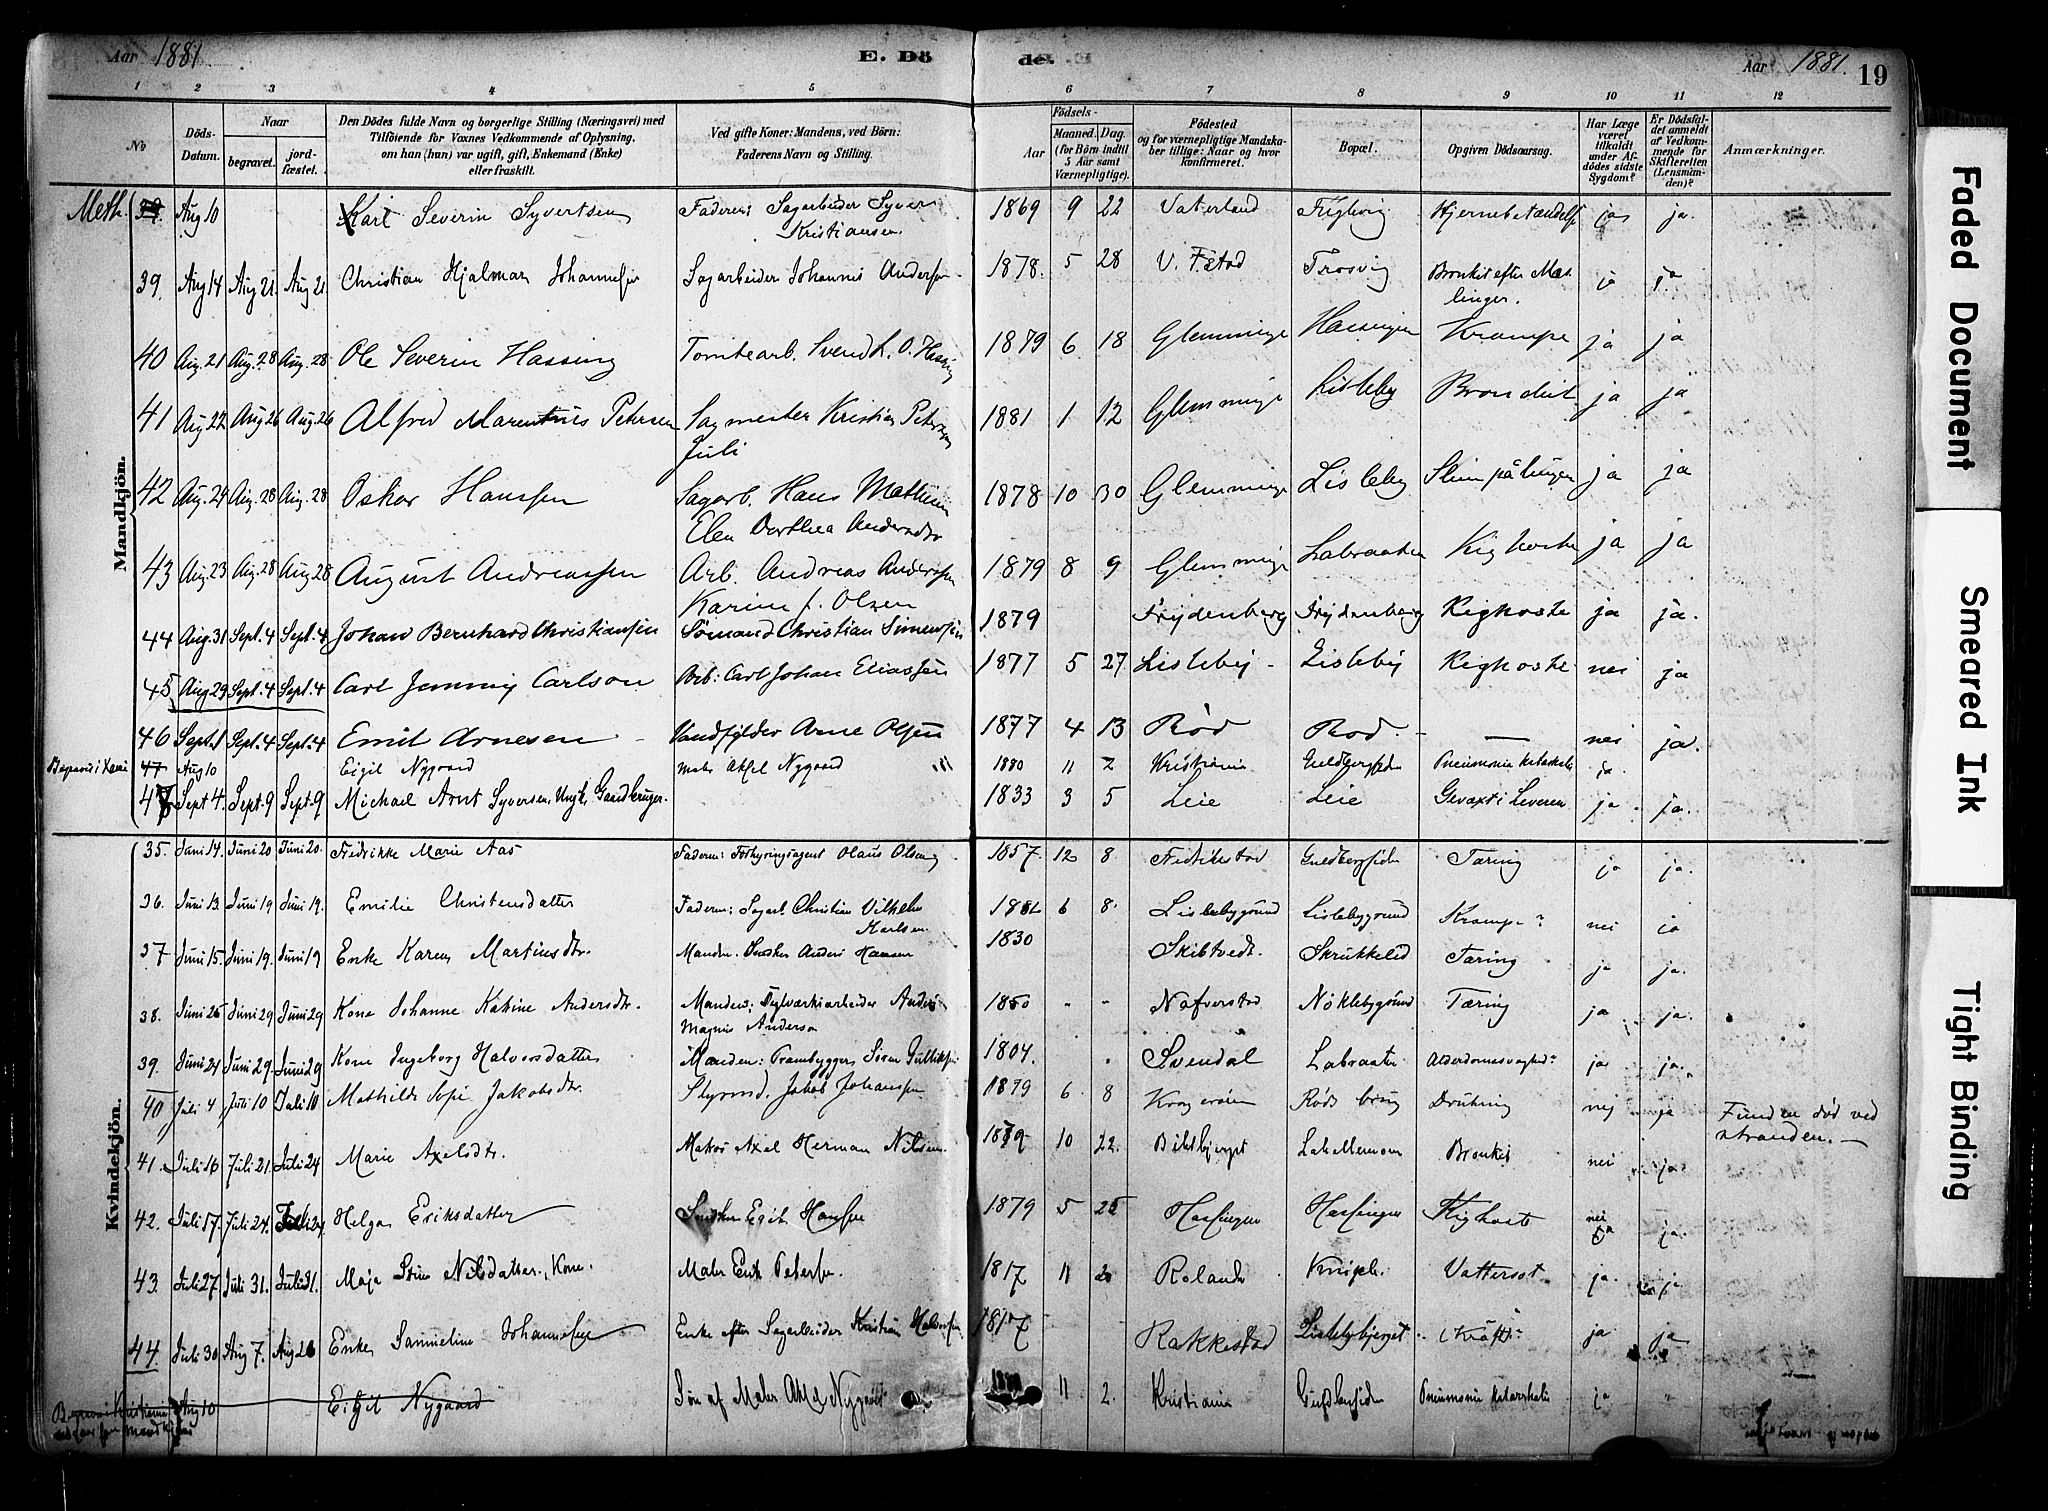 Aar 1881
E. Dö
de.
Aar 1881.
19
1 2 3 4 5 6 7 8 9 10 11 12
No
Döds-
Datum.
Naar
begravet.
jord-
fæstet.
Den Dödes fulde Navn og borgerlige Stilling (Næringsvei) med
Tilföiende for Voxnes Vedkommende af Oplysning,
om han (hun) var ugift, gift, Enkemand (Enke)
eller fraskilt.
Ved gifte Koner: Mandens, ved Börn:
Faderens Navn og Stilling.
Födsels-
Aar
Maaned.
Dag.
(for Börn indtil
5 Aar samt
Værnepligtige).
Födested
og for værnepligtige Mandska-
ber tillige: Naar og hvor
konfirmeret.
Bopæl.
Opgiven Dödsaarsag.
Har Læge
været
tilkaldt
under Af-
dödes sidste
Sygdom?
Er Dödsfal-
det anmeldt
af Vedkom-
mende for
Skifteretten
(Lensman-
den)?
Anmærkninger.
Mandkjön.
Meth. Aug 10 Karl Severin Syvertsen Faderen: Sagarbeider Syver Kristiansen. 1869 9 22 Vaterland Hjernebetændelse ja ja.
39. Aug 14 Aug 21. Aug 21. Christian Hjalmar Johannesen Sagarbeider Johannes Andersen 1878. 5 28 V. Fstad Trosvig Bronkit efter Mæs-
linger. ja ja
40 Aug. 21 Aug. 28 Aug. 28 Ole Severin Hassing Tomtearb. Svend L. O. Hassing 1879 6 18 Glemminge Hassingen Krampe ja ja
41 Aug 22 Aug 26 Aug. 26 Alfred Marentius Petersen Sagmester Kristian Petersen
Juli 1881 1 12 Glemminge Lisleby ja ja
42 Aug. 24 Aug. 28 Aug. 28 Oskar Hanssen Sagarb. Hans Mathisen
Elen Dorthea Andersdtr 1878 10 30 Glemminge Lisleby Slim på lungen ja ja
43 Aug. 23 Aug. 28 Aug 28 August Andreassen Arb. Andreas Anderssen
Karine f. Olsen 1879 8 9 Glemminge Labraaten Kighoste ja ja
44 Aug. 31 Sept. 4 Sept. 4 Johan Bernhard Christiansen Sømand Christian Simensen 1879 Frydenberg Frydenberg Kighoste ja ja.
45 Aug 29 Sept. 4 Sept. 4 Carl Jemmy Carlson Arb: Carl Johan Eliassen 1877 5 27 Lisleby Lisleby Kighoste nei ja
46 Sept. 1 Sept. 4 Sept. 4 Emil Arnesen Arne Olsen 1877 4 13 Röd Rod — nei ja.
Begravet i 47 Aug 10 Eigil Nygaard Maler Axel Nygaard 1880 11 2 Kristiania Guldbergsiden Pneumonia katarrhalis ja.
47 Sept 4. Sept. 9 Sept. 9 Michael Arnt Syversen, Ungk., Gaardbruger. 1833 3 5 Leie Leie Gevæxt i Leveren ja ja.
Kvindekjön.
35. Juni 14. Juni 20 Juni 20. Fredrikke Marie Aas Faderen: Forhyringsagent Olaus Olsen 1857. 12 8 Fredrikstad Guldbergsiden Tæring ja ja.
36. Juni 13. Juni 19 Juni 19. Emilie Christensdatter Faderen: Sagarb. Christian Vilhelm
Karlsen 1881 6 8. Lislebygrund Lislebygrund Krampe? nei ja
37 Juni 15. Juni 19. Juni 19 Enke Karen Martinsdtr. Manden. Snedker Anders Hansen 1830 Skibtvedt. Skrukkelid Tæring ja ja.
38. Juni 25 Juni 29 Juni 29 Kone Johanne Katrine Andersdtr. Manden: Teglværksarbeider Anders
Magnus Anderson 1850 Nafverstad Nöklebygrund Tæring ja ja.
39. Juni 24 Juni 29. Juni 29 Kone Ingeborg Halvorsdatter Manden: Prambygger Sören Gulliksen 1804. Svendal Labraaten Alderdomssvaghed? ja ja.
40 Juli 4 Juli 10 Juli 10 Mathilde Sofie Jakobsdtr. Styrmd. Jakob Johansen 1879 6 8 Krageröen Röds brug Drukning nej ja Funden död ved
stranden.—
41. Juli 16 Juli 21. Juli 24 Marie Axelsdtr. Matros Axel Herman Nilsen 1879 10 22. Lahellemoen Bronkit nei ja.
42. Juli 17. Juli 24. Juli 24 Helga Eriksdatter Snedker Hansen 1879 5 25 Hassingen Hassingen Kighoste nei
ja ja.
43. Juli 27 Juli 31. Juli 31. Maja Stina Nilsdatter, Kone. Maler Erik Petersen. 1817 11 20 Rolands Vattersot. ja. ja
44. Juli 30 Aug 7. Enke Samueline Johannesen Enke efter Sagarbeider Kristian Halvorsen 1817 Rakkestad Lislebybjerget Kräft ja ja
Begravet i Kristiania Aug 10 Eigil Nygaard Sön af Maler Axel Nygaard 11. 2. Kristiania Guldbergsiden Pneumonia katarrhalis ja "
Faded Document
Smeared Ink
Tight Binding